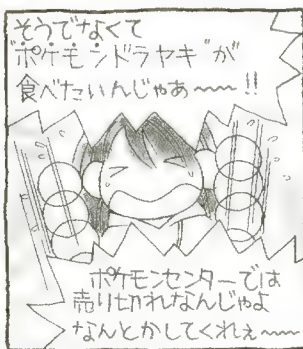 そうでなくて
"ポケモンドラヤキ"が
食べたいんじゃあ〜〜!!
ポケモンセンターでは
売り切れなんじゃよ
なんとかしてくれぇ〜〜